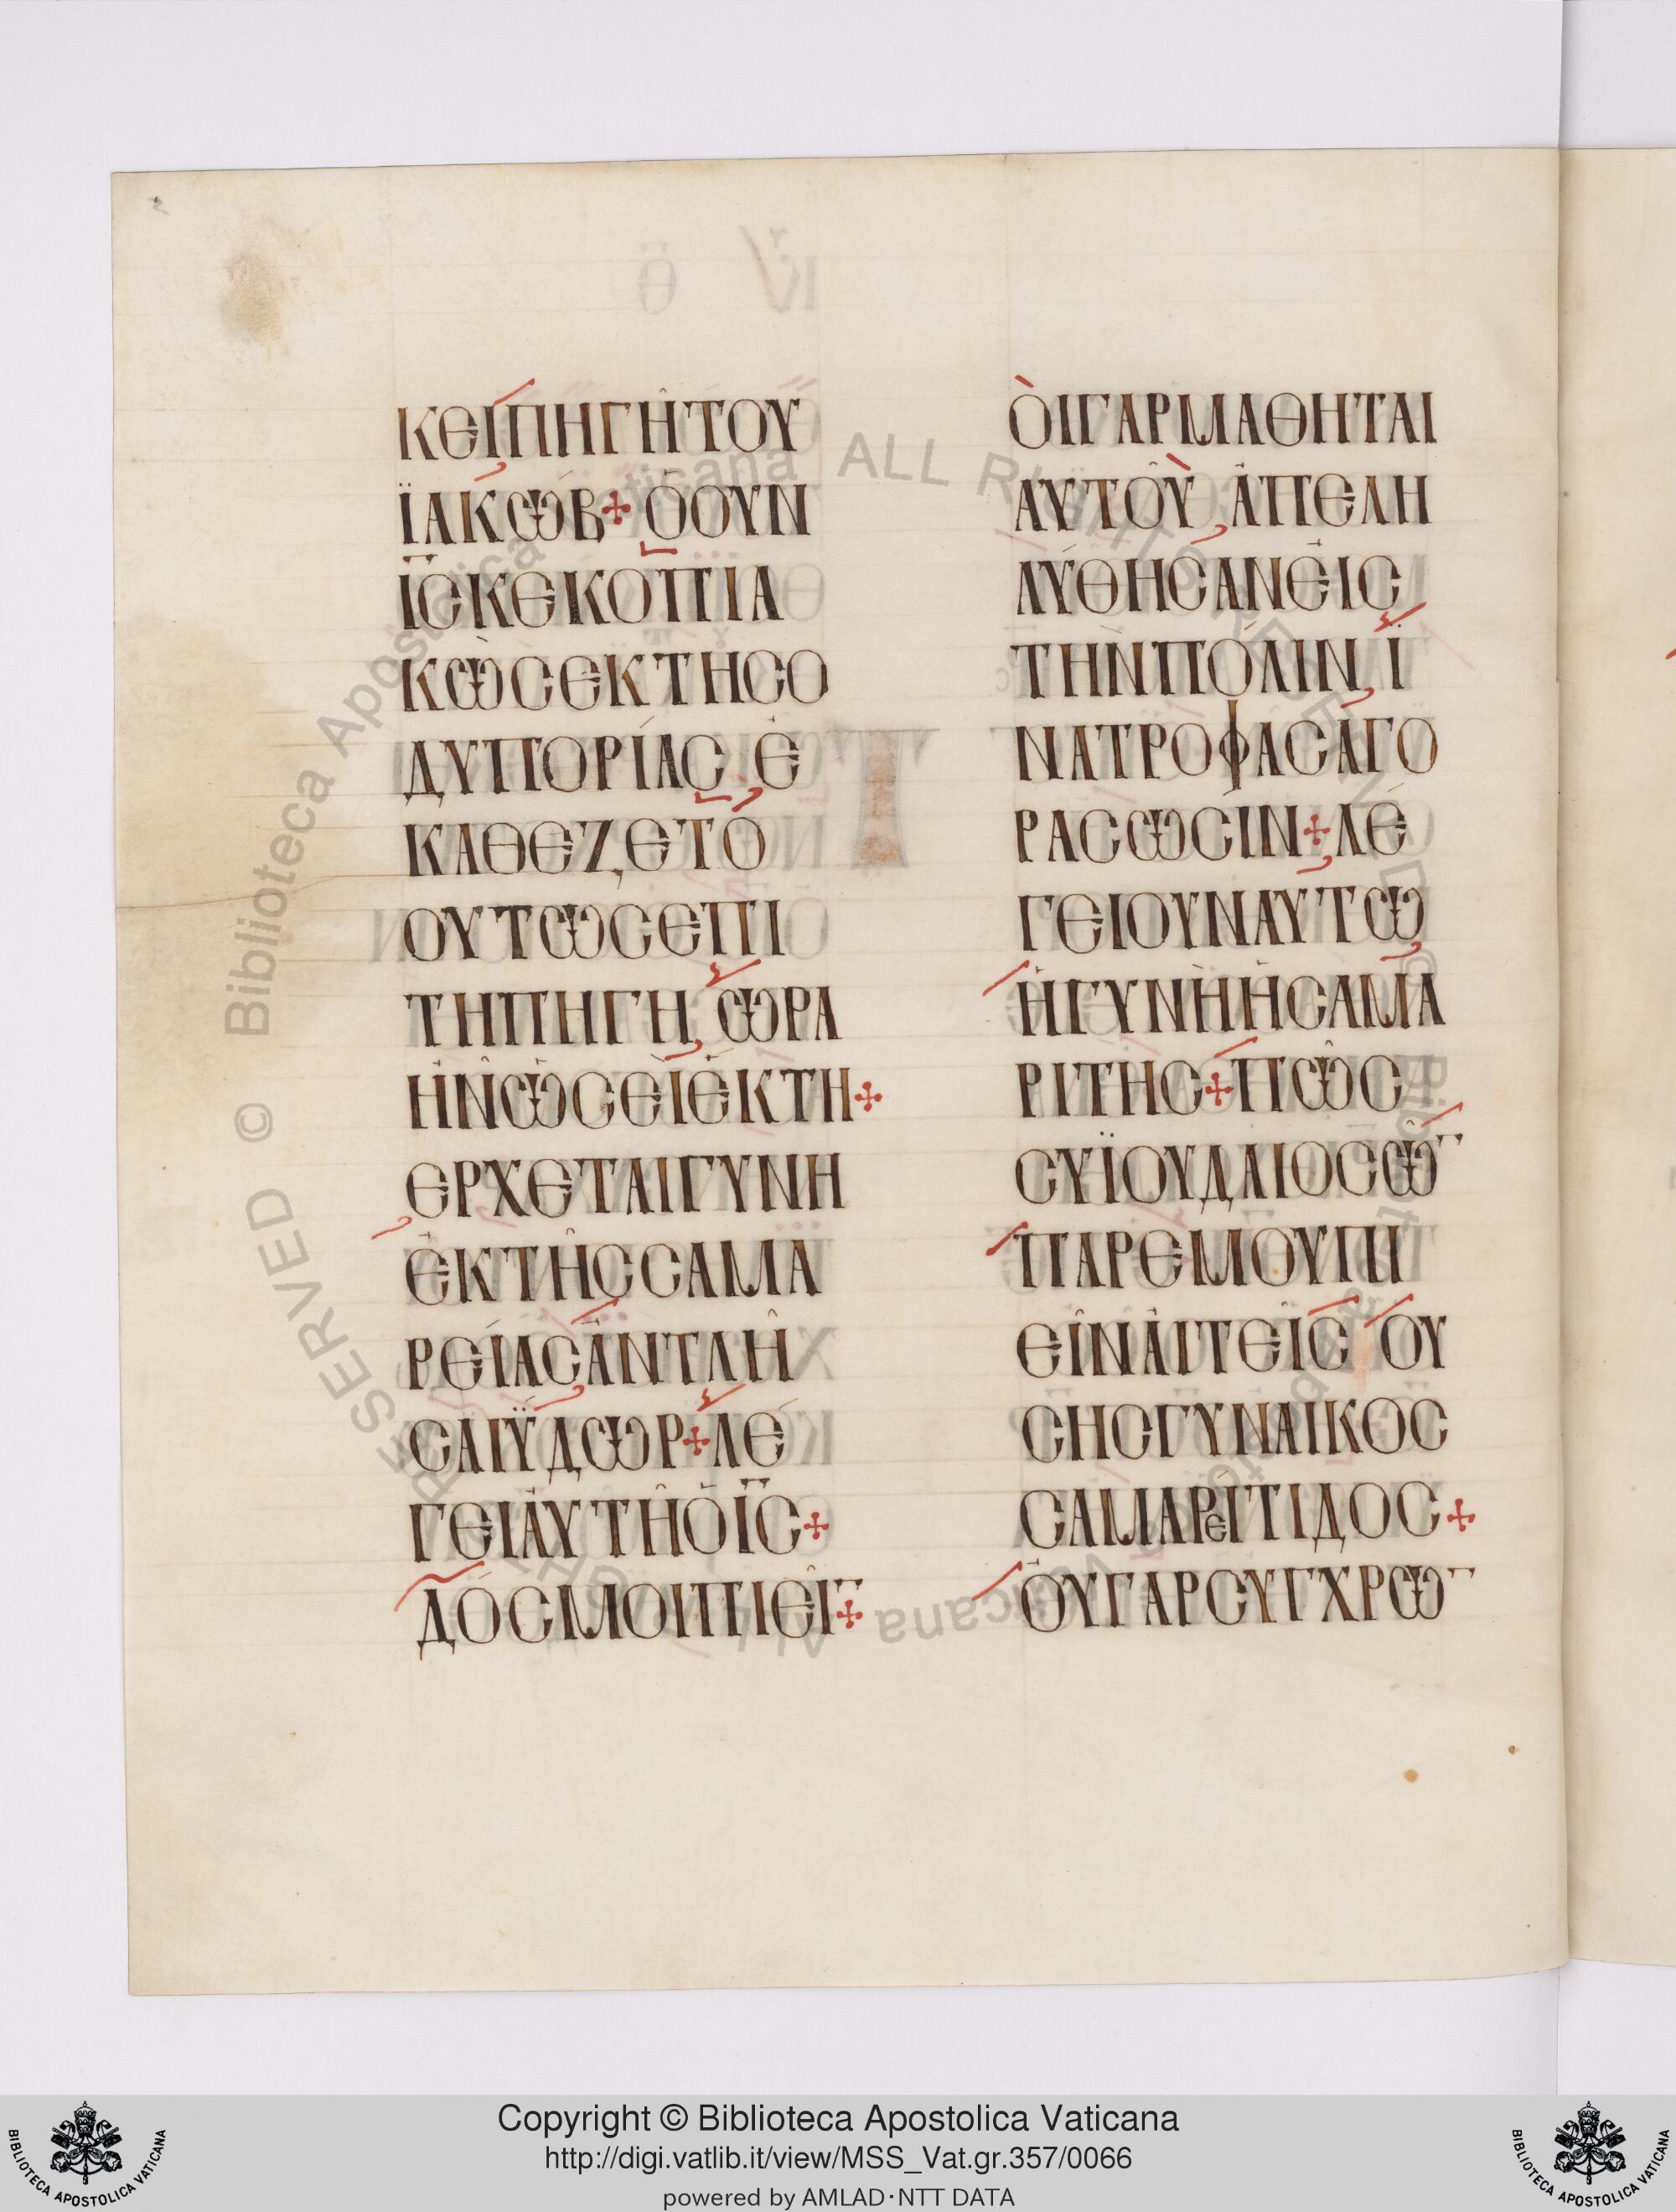 ΚΕΙ ΠΗΓΗ ΤΟΥ
ΪΑΚΩΒ + Ὁ ΟΥΝ
ΙϹ ΚΕΚΟΠΙΑ
ΚΩϹ ΕΚ ΤΗϹ Ο
ΔΥΠΟΡΙΑϹ, Ε
ΚΑΘΕΖΕΤΟ
ΟΥΤΩϹ ΕΠΙ
ΤΗ ΠΗΓΗ, ΩΡΑ
ΗΝ ΩϹΕΙ ΕΚΤΗ +
ΕΡΧΕΤΑΙ ΓΥΝΗ
ΕΚ ΤΗϹ ϹΑΜΑ
ΡΕΙΑϹ ΑΝΤΛΗ
ϹΑΙ ΫΔΩΡ + ΛΕ
ΓΕΙ ΑΥΤΗ Ο ΙϹ +
ΔΟϹ ΜΟΙ ΠΙΕΙ‾ +
ὉΙ ΓΑΡ ΜΑΘΗΤΑΙ
ΑΥΤΟΥ, ΑΠΕΛΗ
ΛΥΘΗϹΑΝ ΕΙϹ
ΤΗΝ ΠΟΛΙΝ, Ϊ
ΝΑ ΤΡΟΦΑϹ ΑΓΟ
ΡΑϹΩϹΙΝ + ΛΕ
ΓΕΙ ΟΥΝ ΑΥΤΩ
Η ΓΥΝΗ Η ϹΑΜΑ
ΡΙΤΗϹ + ΠΩϹ
ϹΥ ΪΟΥΔΑΙΟϹ Ω‾
ΠΑΡ ΕΜΟΥ ΠΙ
ΕΙΝ ΑΙΤΕΙϹ ΟΥ
ϹΗϹ ΓΥΝΑΙΚΟϹ
ϹΑΜΑΡΕΙΤΙΔΟϹ +
ΟΥ ΓΑΡ ϹΥΓΧΡΩ‾
© Biblioteca Apostolica Vaticana ALL RIGHTS RESERVED
Copyright © Biblioteca Apostolica Vaticana
http://digi.vatlib.it/view/MSS_Vat.gr.357/0066
powered by AMLAD·NTT DATA
BIBLIOTECA APOSTOLICA VATICANA
BIBLIOTECA APOSTOLICA VATICANA